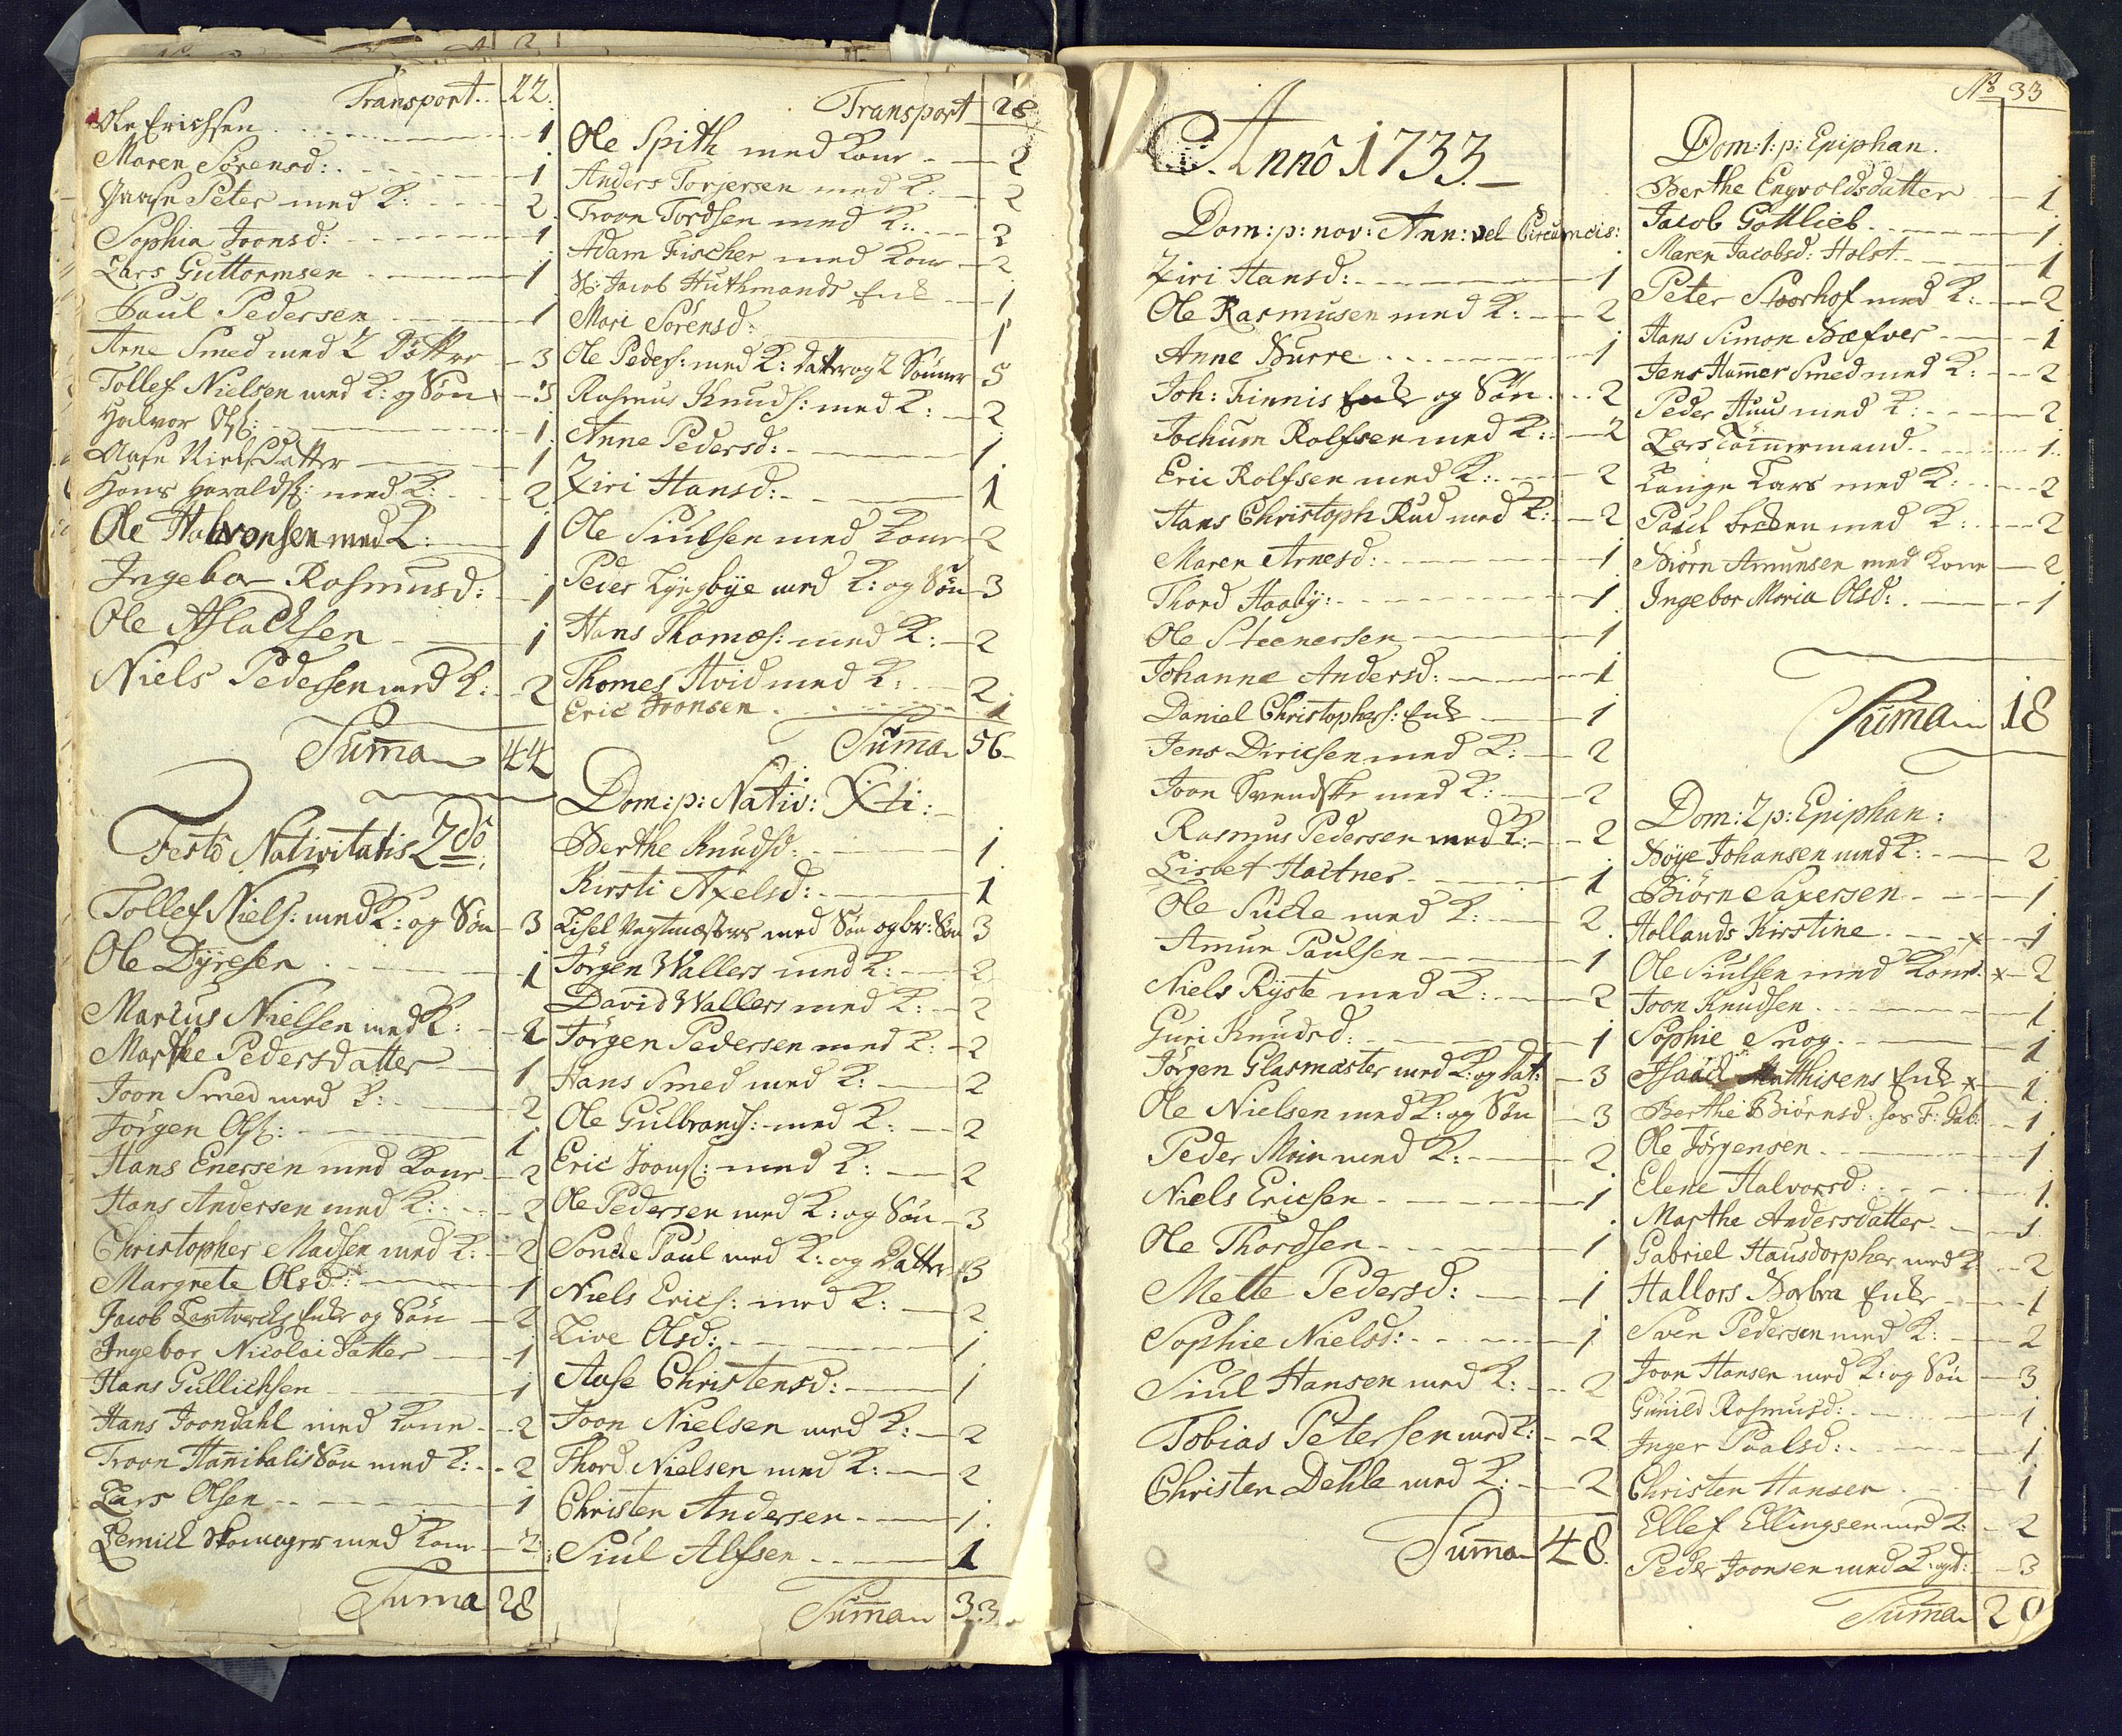 Transport 22.
Ole Erichsen 1
Maren Sörensd: 1
Peter med K: 2
Sophia Joonsd: 1
Lars Guttormsen 1
Paul Pedersen 1
Arne Smed med 2 Dőttre 3
Tollef Nielsen med K: og Sőn 3
Halvor Ols: 1
Aase Nielsdatter 1
Hans Haralds: med K: 2
Ole Halvorsen med K: 1
Ingebor Rasmusd: 1
Ole Aslachsen 1
Niels Pedersen med K: 2
Suma 44
Festo Nativitatis 2do:
Tollef Niels: med K: og Sőn 3
Ole Dÿresen 1
Marcus Nielsen med K: 2
Marthe Pedersdatter 1
Joon Smed med K: 2
Jörgen Ols: 1
Hans Enersen med Kone 2
Hans Andersen med K: 2
Christopher Madsen med K: 2
Margrete Olsd: 1
Jacob Enke og Sőn 2
Ingebor Nicolaidatter 1
Hans Gullichsen 1
Hans Joondahl med Kone 2
Troon Hanibalis Sőn med K: 2
Lars Olsen 1
Lemich Skomager med Kone 2
Suma 28
Transport 28
Ole Spith med Kone 2
Anders Torjersen med K: 2
Troon Tordsen med K: 2
Adam Fischer med Kone 2
Jacob Huthmands Enke 1
Mari Sörensd: 1
Ole Peders: med K: Datter og 2 Sőnner 5
Rasmus Knuds: med K: 2
Anne Pedersd: 1
Ziri Hansd: 1
Ole Siulsen med Kone 2
Peder Lÿngbÿe med K: og Sőn 3
Hans Thomæs: med K: 2
Thomes Hvid med K: 2
Eric Joonsen 1
Suma 56
Dom: p: Nativ: Xti:
Berthe Knudsd: 1
Kirsti Axelsd: 1
Lisel Vagtmesters med Sőn og br: Sőn 3
Jörgen Wallers med K: 2
David Wallers med K: 2
Jörgen Pedersen med K: 2
Hans Smed med K: 2
Ole Gulbrands: med K: 2
Eric Joons: med K: 2
Ole Pedersen med K: og Sőn 3
Paul med K: og Datter 3
Niels Erics: med K: 2
Live Olsd: 1
Aase Christensd: 1
Joon Nielsen med K: 2
Thord Nielsen med K: 2
Christen Andersen 1
Siul Alfsen 1
Suma 33
Anno 1733.
Dom: p: nov: Ann: vel Circumcis:
Ziri Hansd: 1
Ole Rasmusen med K: 2
Anne Burre 1
Joh: Finnis Enke og Sőn 2
Jochum Rolfsen med K: 2
Eric Rolfsen med K: 2
Hans Christoph Rud med K: 2
Maren Arnesd: 1
Thord Haabÿ: 1
Ole Steenersen 1
Johanne Andersd: 1
Daniel Christophers: Enke 1
Jens Diricsen med K: 2
Joon Svendske med K: 2
Rasmus Pedersen med K: 2
Lisbet Haitner 1
Ole Sucke med K: 2
Amun Paulsen 1
Niels Rÿste med K: 2
Guri Knudsd: 1
Jörgen Glasmæster med K: og Dat: 3
Ole Nielsen med K: og Sőn 3
Peder Moin med K: 2
Niels Ericsen 1
Ole Thordsen 1
Mette Pedersd: 1
Sophie Nielsd: 1
Siul Hansen med K: 2
Tobias Petersen med K: 2
Christen Dehle med K: 2
Suma 48
No 33
Dom: 1: p: Epiphan.
Berthe Engvoldsdatter 1
Jacob Gottlieb 1
Maren Jacobsd: Holst 1
Peter Stoorhof med K: 2
Hans Simon Bæfver 1
Jens Hamer Smed med K: 2
Peder Huus med K: 2
Lars Tömmermand 1
Lange Lars med K: 2
Paul med K: 2
Biörn Amunsen med Kone 2
Ingebor Maria Olsd: 1
Suma 18
Dom: 2 p: Epiphan:
Böÿe Johansen med K: 2
Biörn Saxersen 1
Hollands Kirstine x 1
Ole Siulsen med Kone x 2
Joon Knudsen 1
Sophie Snog 1
Isaac Matthisens Enke x 1
Berthe Biörnsd: hos F: Gab: 1
Ole Jörgensen 1
Elene Halvorsd: 1
Marthe Andersdatter 1
Gabriel Hausdorpher med K 2
Hallors Barbra Enke 1
Sven Pedersen med K: 2
Joon Hansen med K: og Sőn 3
Gunild Rasmusd: 1
Inger Paalsd: 1
Christen Hansen 1
Ellef Ellingsen med K: 2
Peder Joonsen med K: og d: 3
Suma 29